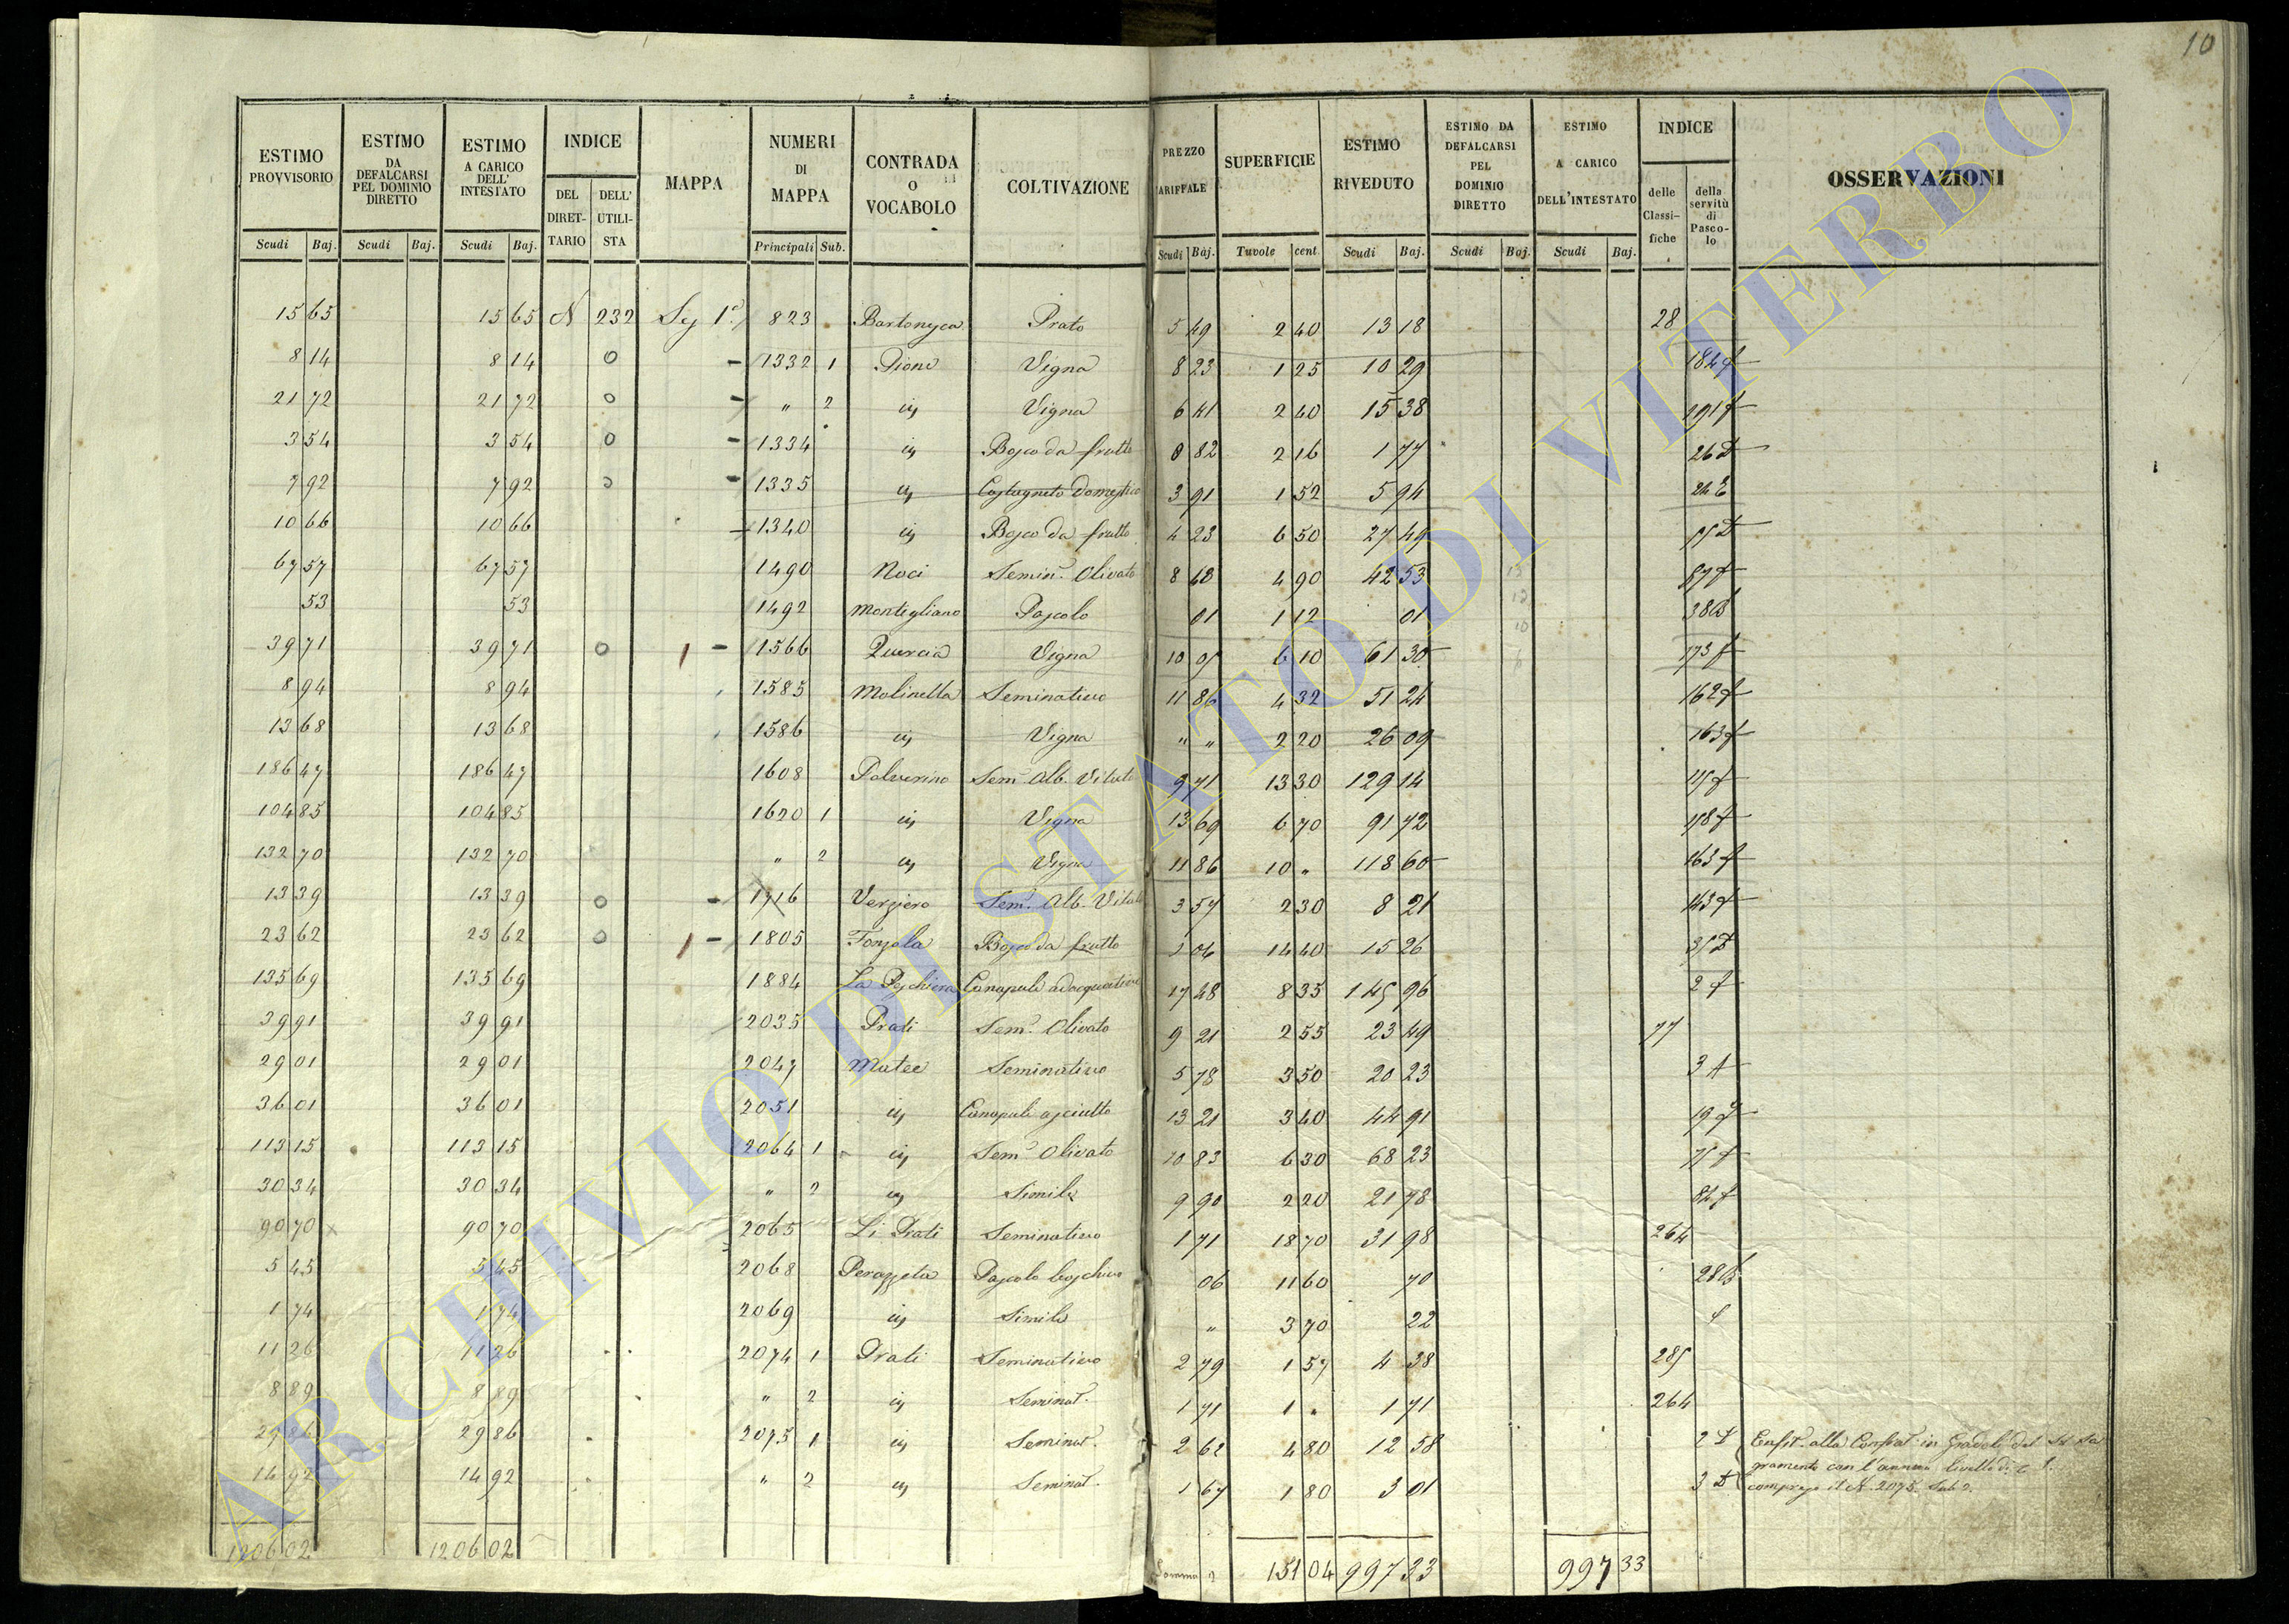 10
ESTIMO PROVVISORIO | ESTIMO DA DEFALCARSI PEL DOMINIO DIRETTO | ESTIMO A CARICO DELL' INTESTATO | INDICE | MAPPA | NUMERI DI MAPPA | CONTRADA O VOCABOLO | COLTIVAZIONE | PREZZO TARIFFALE | SUPERFICIE | ESTIMO RIVEDUTO | ESTIMO DA DEFALCARSI PEL DOMINIO DIRETTO | ESTIMO A CARICO DELL'INTESTATO | INDICE | OSSERVAZIONI
DEL DIRET-TARIO | DELL' UTILI-STA | delle Classi-fiche | della servitù di Pasco-lo
Scudi Baj. | Scudi Baj. | Scudi Baj. | Principali Sub. | Scudi Baj. | Tavole cent. | Scudi Baj. | Scudi Baj. | Scudi Baj.
15 65 | 15 65 | N | 232 | 823 | Prato | 5 49 | 2 40 | 13 18 | 28
8 14 | 8 14 | o | 1332 1 | Vigna | 8 23 | 1 25 | 10 29
21 72 | 21 72 | o | " 2 | Vigna | 6 41 | 2 40 | 15 38
3 54 | 3 54 | o | 1334 | Bosco da frutto | 0 82 | 2 16 | 1 77
7 92 | 7 92 | o | 1335 | Castagneto Domestico | 3 91 | 1 52 | 5 94
10 66 | 10 66 | 1340 | Bosco da frutto | 4 23 | 6 50 | 27 49
67 57 | 67 57 | 1490 | Noci | Semin. Olivato | 8 68 | 4 90 | 42 53
53 | 53 | 1492 | Montigliano | Pascolo | 01 | 1 12 | 01
39 71 | 39 71 | o | 1566 | Quercia | Vigna | 6 10 | 61 30
8 94 | 8 94 | 1585 | Molinella | Seminativo | 11 86 | 4 32 | 51 24
13 68 | 13 68 | 1586 | Vigna | " " | 2 20 | 26 09
186 47 | 186 47 | 1608 | Polverino | Sem. Alb. Vitato | 9 71 | 13 30 | 129 14
104 85 | 104 85 | 1620 1 | Vigna | 13 69 | 6 70 | 91 72
132 70 | 132 70 | " 2 | Vigna | 11 86 | 10 " | 118 60
13 39 | 13 39 | o | 1716 | Verziero | Sem. Alb. Vitato | 3 57 | 2 30 | 8 21
23 62 | 23 62 | o | 1805 | Bosco da frutto | 1 06 | 14 40 | 15 26
135 69 | 135 69 | 1884 | La Peschiera | Canapule adacquativo | 17 48 | 8 35 | 145 96
39 91 | 39 91 | 2035 | Prati | Sem. Olivato | 9 21 | 2 55 | 23 49 | 77
29 01 | 29 01 | 2047 | Matee | Seminativo | 5 78 | 3 50 | 20 23
36 01 | 36 01 | 2051 | Canapule asciutto | 13 21 | 3 40 | 44 91
113 15 | 113 15 | 2064 1 | Sem. Olivato | 10 83 | 6 30 | 68 23
30 34 | 30 34 | " 2 | Simile | 9 90 | 2 20 | 21 78
90 70 | 90 70 | 2065 | Li Prati | Seminativo | 1 71 | 18 70 | 31 98 | 264
5 45 | 5 45 | 2068 | Perazzeta | Pascolo boschivo | 06 | 11 60 | 70
1 74 | 1 74 | 2069 | Simile | " | 3 70 | 22
11 26 | 11 26 | 2074 1 | Prati | Seminativo | 2 79 | 1 57 | 4 38 | 285
8 89 | 8 89 | " 2 | Seminat. | 1 71 | 1 " | 1 71 | 264
29 86 | 29 86 | 2075 1 | Seminat. | 2 62 | 4 80 | 12 58 | Enfit. alla Confrat. in Gradoli del SS Sa
gramento con l'annuo livello di
14 92 | 14 92 | " 2 | Seminat. | 1 67 | 1 80 | 3 01 | compreso il N. 2075 Sub 2.
1206 02 | 1206 02 | Somma | 151 04 | 997 33 | 997 33
ARCHIVIO DI STATO DI VITERBO